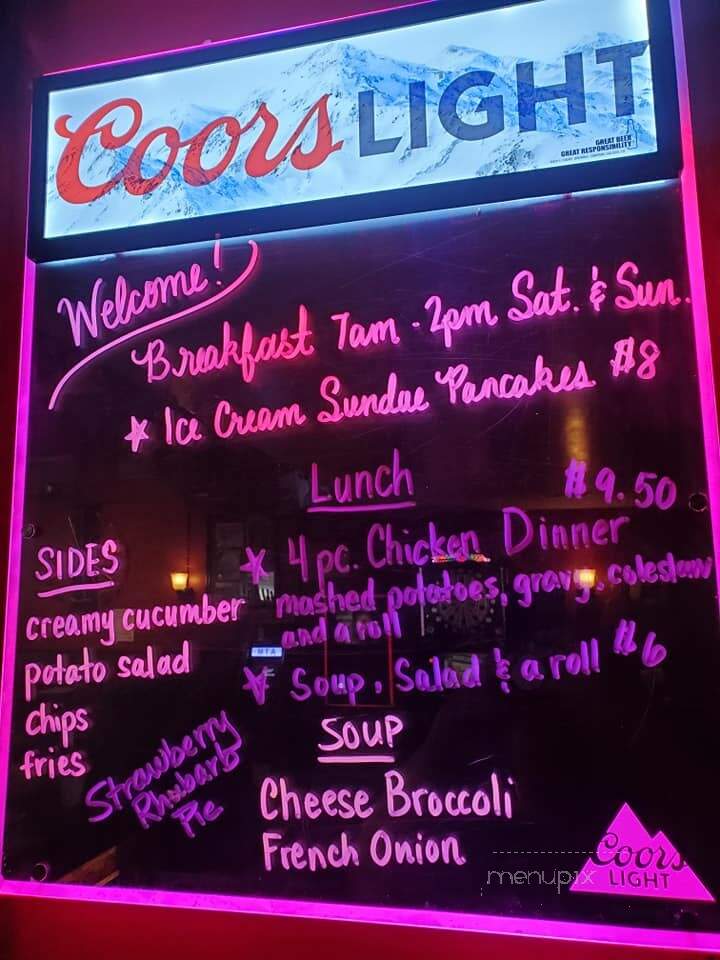 Coors LIGHT
GREAT BEER
GREAT RESPONSIBILITY
Welcome!
Breakfast 7am - 2pm Sat. & Sun.
* Ice Cream Sundae Pancakes $8
Lunch
$9.50
* 4 pc. Chicken Dinner
mashed potatoes, gravy, coleslaw
and a roll
* Soup, Salad & a roll $6
SIDES
creamy cucumber
potato salad
chips
fries
Strawberry
Rhubarb
Pie
SOUP
Cheese Broccoli
French Onion
MTA
menupix
Coors
LIGHT